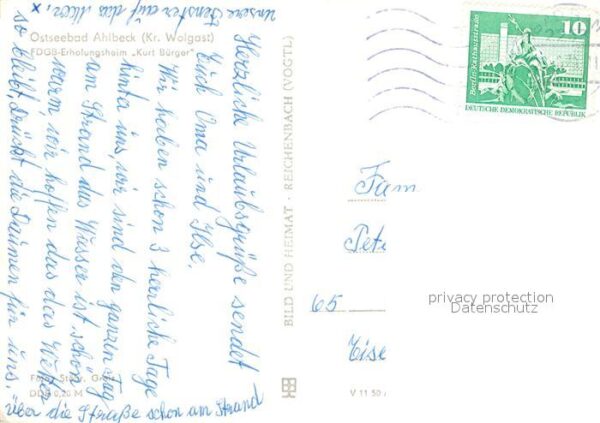 Ostseebad Ahlbeck (Kr. Wolgast)
FDGB-Erholungsheim „Kurt Bürger"
Herzliche Urlaubsgrüße sendet
Euch Oma und Ilse.
Wir haben schon 3 herrliche Tage
hinter uns, wir sind den ganzen Tag
am Strand das Wasser ist schön
wir hoffen das das Wetter
so bleibt, drückt die Daumen für uns.
über die Straße schon am Strand
unsere Fenster auf das Meer,
x
DDR 0,20 M
BILD UND HEIMAT · REICHENBACH (VOGTL)
V 11 50
10
Berlin
DEUTSCHE DEMOKRATISCHE REPUBLIK
Fam
Pet
65
Eise
privacy protection
Datenschutz